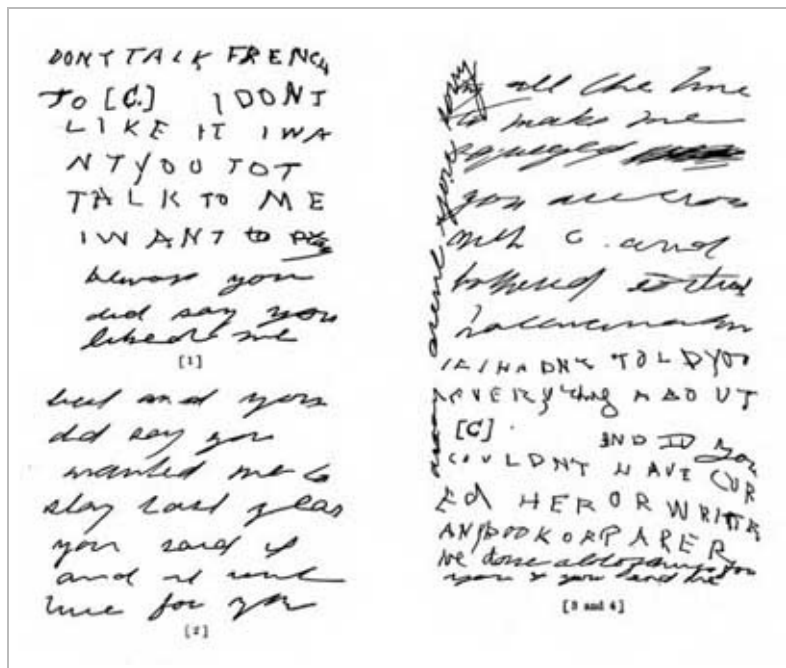 DONT TALK FRENCH
TO [C.] I DONT
LIKE IT I WA
NT YOU TOT
TALK TO ME
I WANT to
because you
did say you
liked me
[1]
best and you
did say you
wanted me to
stay last year
you said it
and it isnt
true for you
[2]
all the time
to make me
you are cross
with C. and
bothered
IF I HADNT TOLD YOU
EVERYthing ABOUT
[C] AND ID you
COULDNT HAVE CUR
ED HER OR WRITTR
ANY BOOK OR PAPER
Ive done
you & you
[3 and 4]
arent you sorry